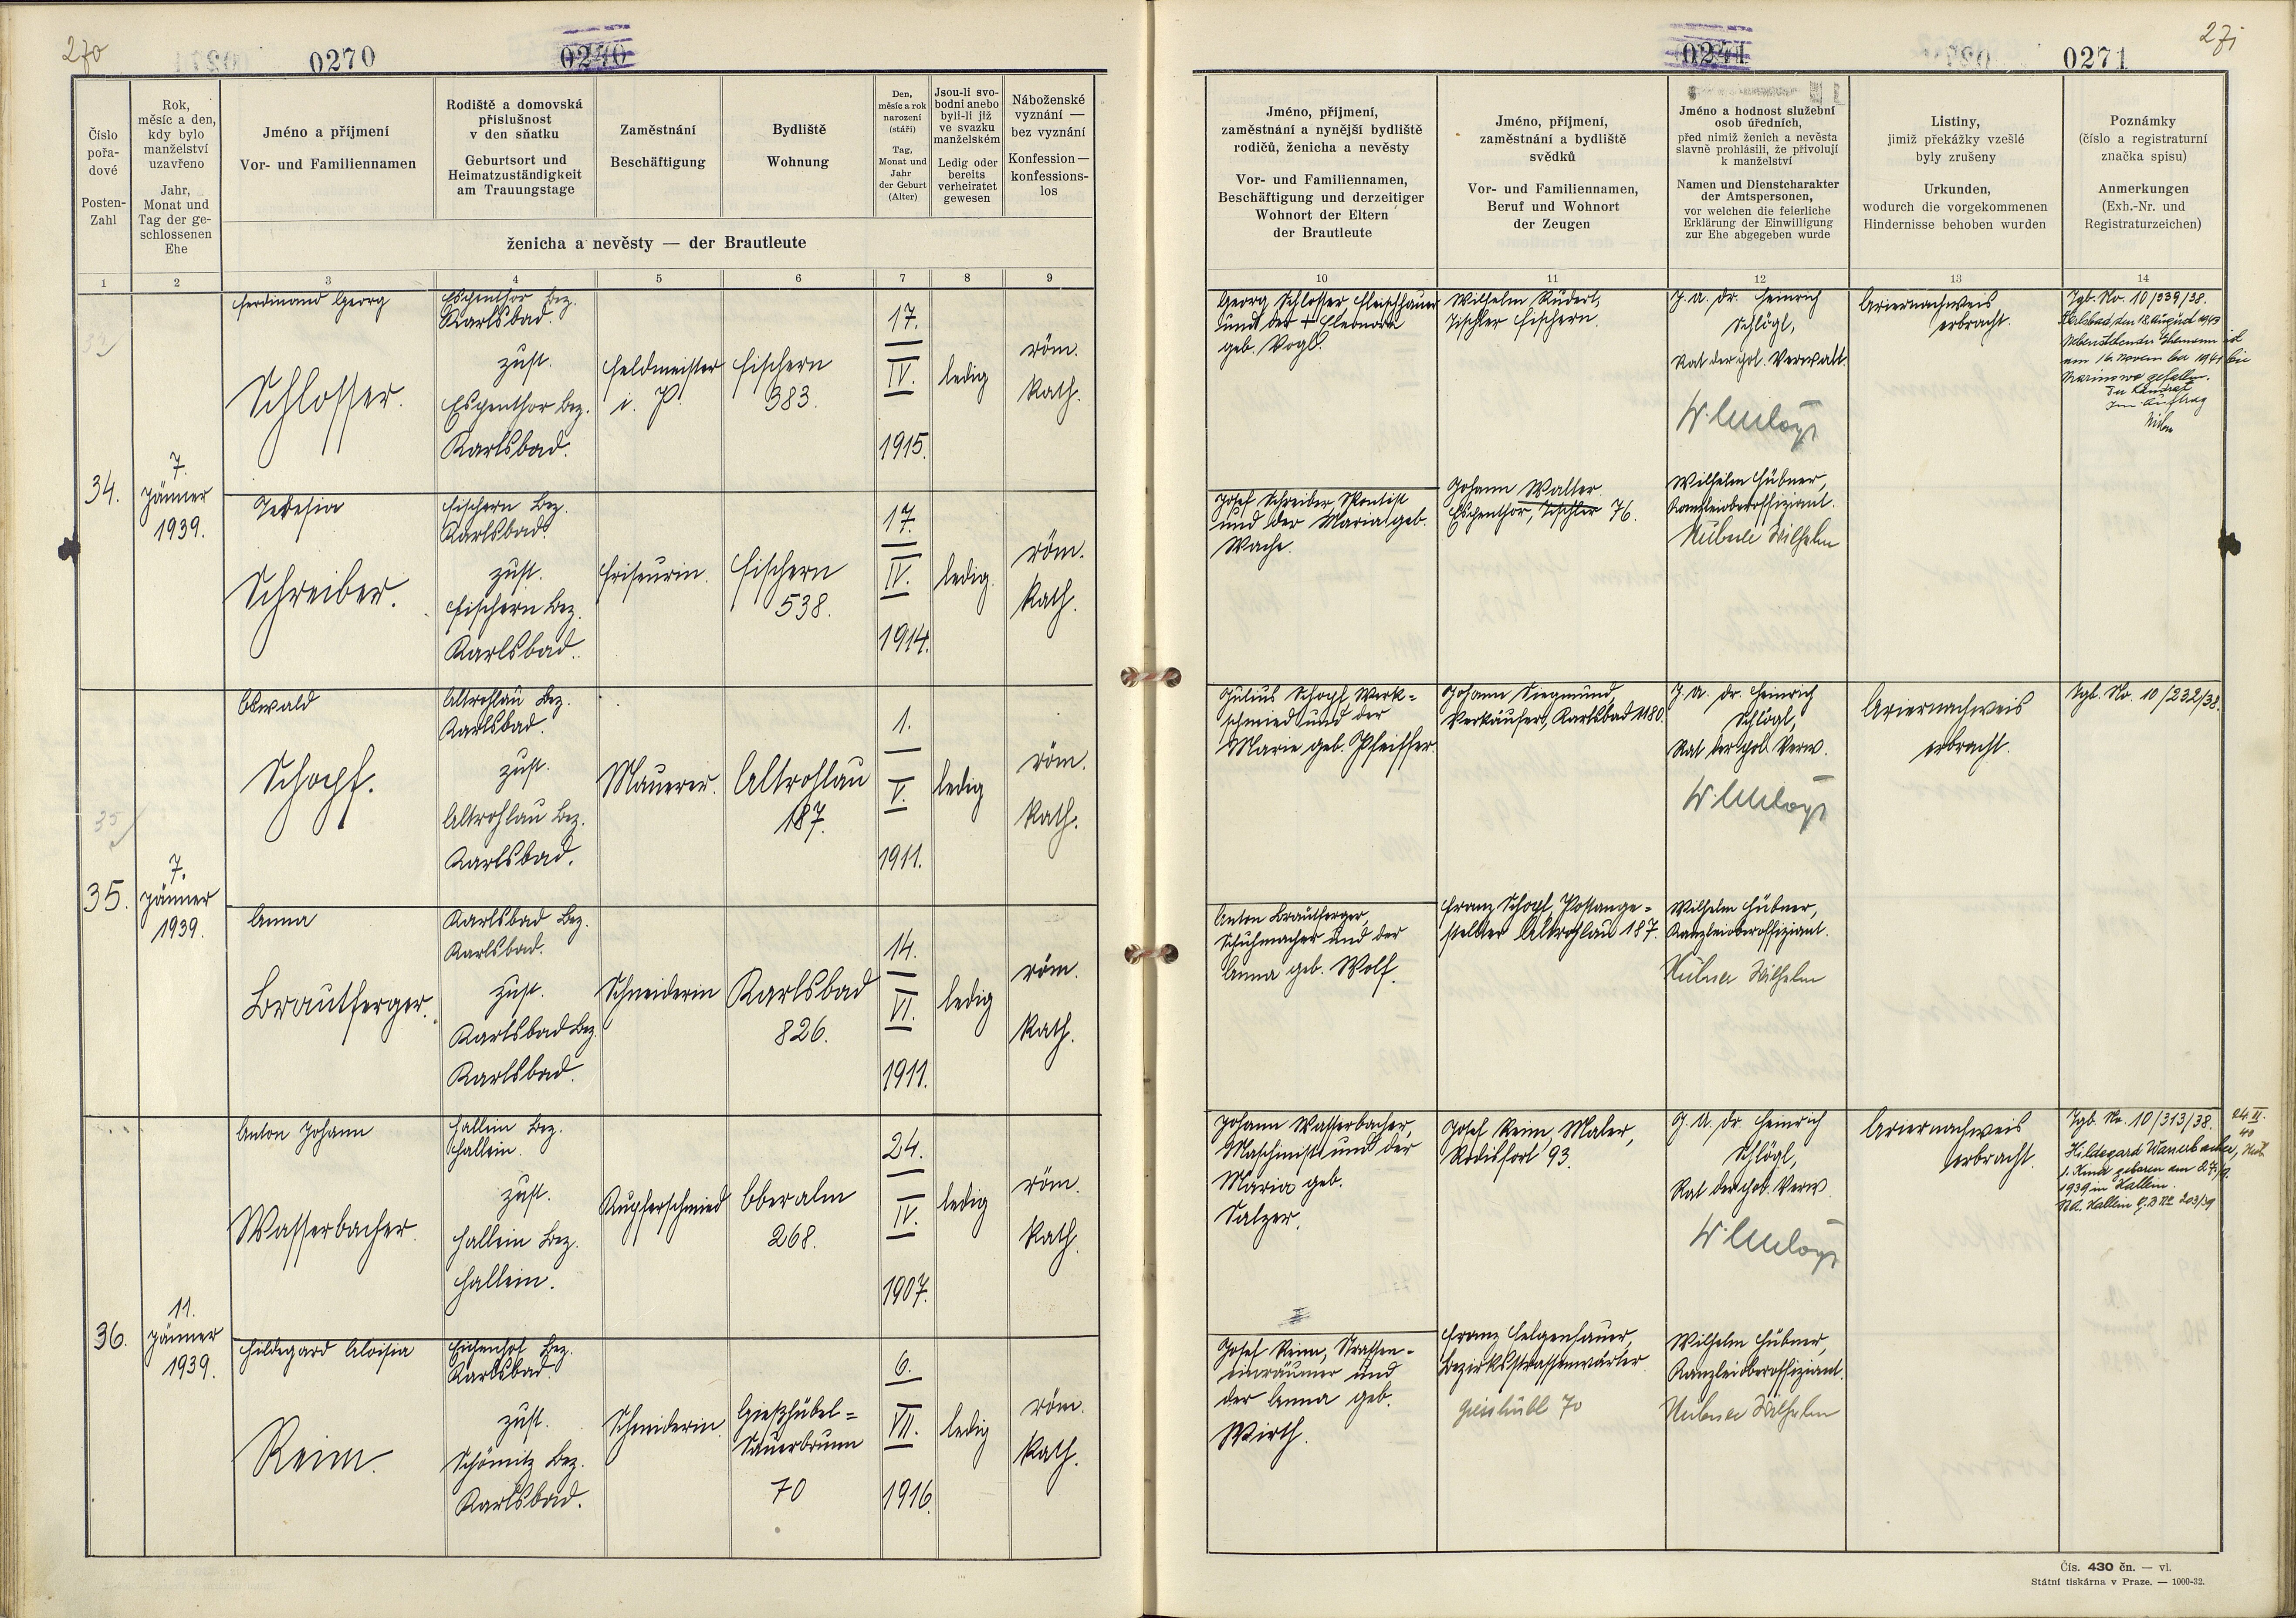 270
0270
0240
Číslo pořa-dové
Posten-Zahl
Rok, měsíc a den, kdy bylo manželství uzavřeno
Jahr, Monat und Tag der ge-schlossenen Ehe
Jméno a příjmení
Vor- und Familiennamen
Rodiště a domovská příslušnost v den sňatku
Geburtsort und Heimatzuständigkeit am Trauungstage
Zaměstnání
Beschäftigung
Bydliště
Wohnung
Den, měsíc a rok narození (stáří)
Tag, Monat und Jahr der Geburt (Alter)
Jsou-li svo-bodni anebo byli-li již ve svazku manželském
Ledig oder bereits verheiratet gewesen
Náboženské vyznání — bez vyznání
Konfession — konfessions-los
ženicha a nevěsty — der Brautleute
1 2 3 4 5 6 7 8 9
34.
7.
Jänner
1939.
Ferdinand Georg
Schlosser.
Espenthor Bez.
Karlsbad.
zust.
Espenthor Bez.
Karlsbad.
Feldmeister
i. P.
Fischern
383.
17.
IV.
1915.
ledig
röm.
kath.
Teresia
Schreiber.
Fischern Bez.
Karlsbad.
zust.
Fischern Bez.
Karlsbad.
Friseurin.
Fischern
538.
17.
IV.
1914.
ledig.
röm.
kath.
35
35.
7.
Jänner
1939.
Oswald
Schopf.
Altrohlau Bez.
Karlsbad.
zust.
Altrohlau Bez.
Karlsbad.
Maurer.
Altrohlau
187.
1.
V.
1911.
ledig
röm.
kath.
Anna
Brautferger.
Karlsbad Bez.
Karlsbad.
zust.
Karlsbad Bez.
Karlsbad.
Schneiderin
Karlsbad
826.
14.
VI.
1911.
ledig
röm.
kath.
36.
11.
Jänner
1939.
Anton Johann
Wasserbacher.
Hallein Bez.
Hallein.
zust.
Hallein Bez.
Hallein.
Kupferschmied
Oberalm
268.
24.
IV.
1907.
ledig
röm.
kath.
Hildegard Aloisia
Reim.
Eichenhof Bez.
Karlsbad.
zust.
Schömitz Bez.
Karlsbad.
Schneiderin.
Gießhübel=
Sauerbrunn
70
6.
VII.
1916.
ledig
röm.
kath.
0241
0271
271
Jméno, příjmení, zaměstnání a nynější bydliště rodičů, ženicha a nevěsty
Vor- und Familiennamen, Beschäftigung und derzeitiger Wohnort der Eltern der Brautleute
Jméno, příjmení, zaměstnání a bydliště svědků
Vor- und Familiennamen, Beruf und Wohnort der Zeugen
Jméno a hodnost služební osob úředních,
před nimiž ženich a nevěsta slavně prohlásili, že přivolují k manželství
Namen und Dienstcharakter der Amtspersonen,
vor welchen die feierliche Erklärung der Einwilligung zur Ehe abgegeben wurde
Listiny, jimiž překážky vzešlé byly zrušeny
Urkunden, wodurch die vorgekommenen Hindernisse behoben wurden
Poznámky (číslo a registraturní značka spisu)
Anmerkungen (Exh.-Nr. und Registraturzeichen)
10 11 12 13 14
Georg Schlosser Fleischhauer
und der + Eleonora
geb. Vogl.
Wilhelm Rüderl,
Tischler Fischern.
J. A. Dr. Heinrich
Schlögl,
Rat der pol. Verwalt.
Ariernachweis
erbracht.
Tgb. No. 10/339/38.
Karlsbad, den 18. August 1943
Nebenstehender Ehemann ist
am 16. November 1941 bei
gefallen.
Der Landrat
Im Auftrag
Josef Schreiber,
und der Maria geb.
Wache.
Johann Walter
Espenthor, Tischler 76.
Wilhelm Hübner,
Kanzleioberoffiziant.
Hübner Wilhelm
Julius Schopf, Werk=
schmied und der
Marie geb. Pfeiffer.
Johann Siegmund,
Verkäufer, Karlsbad 1180.
J. A. Dr. Heinrich
Schlögl,
Rat der pol. Verw.
Ariernachweis
erbracht.
Tgb. No. 10/232/38.
Anton Brautferger,
Schuhmacher und der
Anna geb. Wolf.
Franz Schopf, Postange=
stellter Altrohlau 187.
Wilhelm Hübner,
Kanzleioberoffiziant.
Hübner Wilhelm
Johann Wasserbacher,
Maschinist und der
Maria geb.
Salzer.
Josef Reim, Maler,
Rodisfort 93.
J. A. Dr. Heinrich
Schlögl,
Rat der pol. Verw.
Ariernachweis
erbracht.
Tgb. No. 10/313/38.
Hildegard Wasserbacher,
1. Kind geboren am
1939 in Hallein.
Josef Reim, Strassen=
einräumer und
der Anna geb.
Wirth.
Franz Helgenhauer,
Bezirksstrassenwärter
Giesshübl 70
Wilhelm Hübner,
Kanzleioberoffiziant.
Hübner Wilhelm
Čís. 430 čn. — vl.
Státní tiskárna v Praze. — 1000-32.